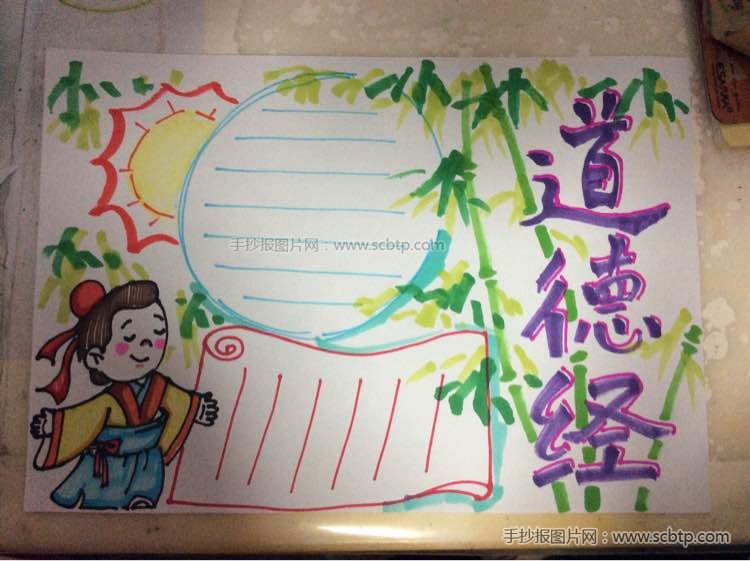 道德经
手抄报图片网：www.scbtp.com
手抄报图片网：www.scbtp.com